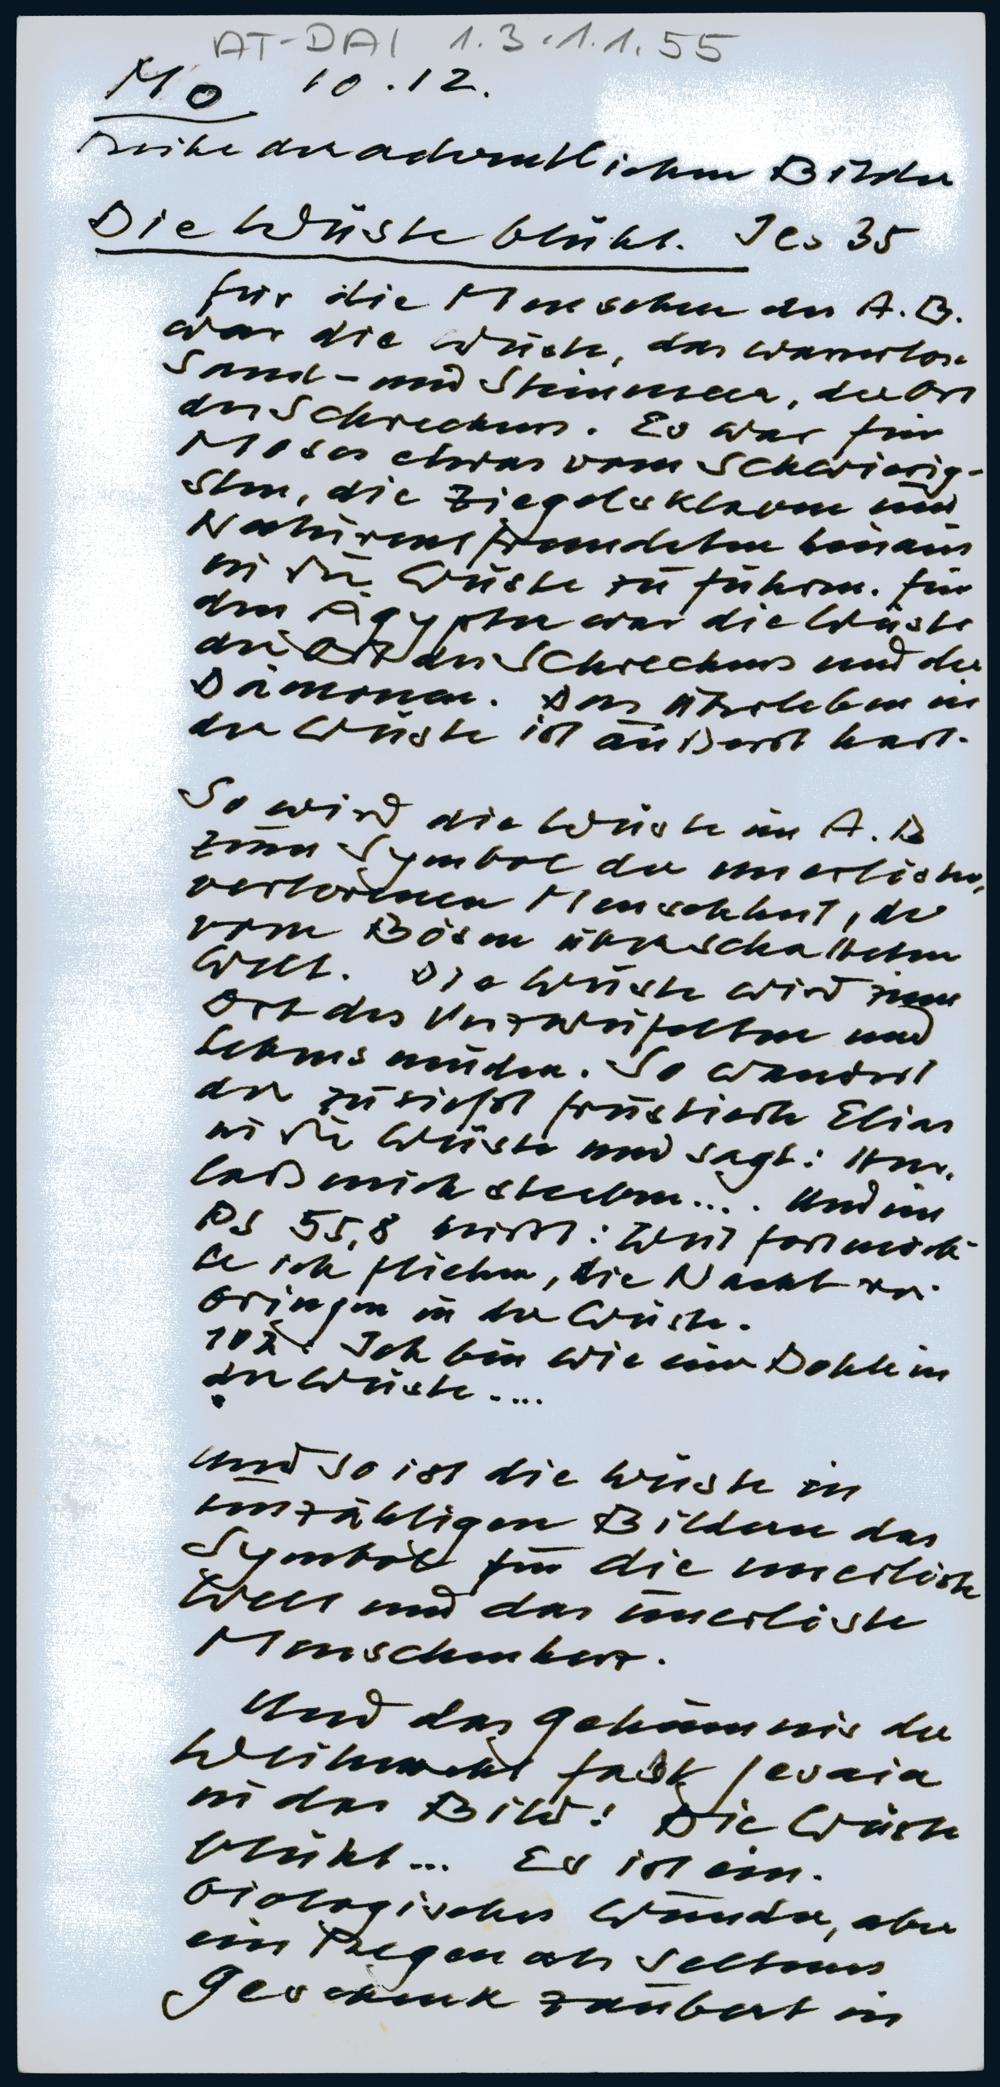 AT-DAI 1.3.1.1.55
Mo 10.12.
Reihe der adventlichen Bilder
Die Wüste blüht. Jes 35
Für die Menschen der A.B.
war die Wüste, das wasserlose
Sand- und Steinmeer, der Ort
des Schreckens. Es war für
Moses etwas vom Schwierig-
sten, die Ziegelsklaven und
Naturentfremdeten hinaus
in die Wüste zu führen. Für
den Ägypter war die Wüste
der Ort des Schreckens und der
Dämonen. Das Überleben in
der Wüste ist äußerst hart.
So wird die Wüste im A.B
zum Symbol der unerlösten,
verlorenen Menschheit, der
vom Bösen überschatteten
Welt. Die Wüste wird zum
Ort des Verzweifelten und
Lebensmüden. So wandert
der zutiefst frustierte Elias
in die Wüste und sagt: Herr,
laß mich sterben.... Und im
Ps 55,8 heißt: Weit fort möch-
te ich fliehen, die Nacht ver-
bringen in der Wüste.
102: Ich bin wie eine Dohle in
der Wüste....
Und so ist die Wüste in
unzähligen Bildern das
Symbol für die unerlöste
Welt und das unerlöste
Menschenherz.
Und das Geheimnis der
Weihnacht faßt Jesaia
in das Bild: Die Wüste
blüht... Es ist ein
biologisches Wunder, aber
ein Regen als seltenes
Geschenk zaubert in